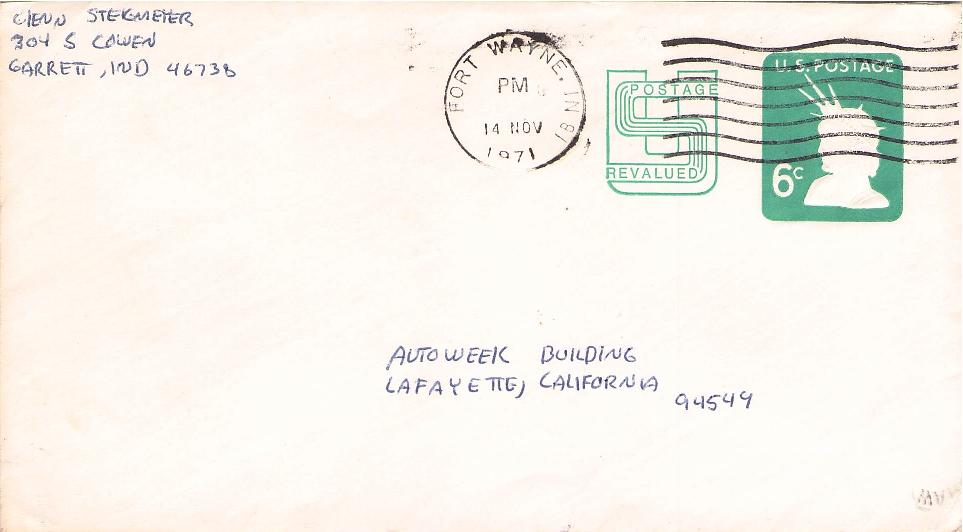 GLENN STEKMEYER
304 S COWEN
GARRETT, IND 46738
FORT WAYNE, IN
PM
14 NOV
1971
POSTAGE
REVALUED
U.S. POSTAGE
6c
AUTOWEEK BUILDING
LAFAYETTE, CALIFORNIA
94549